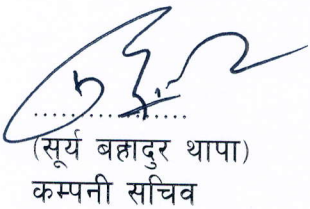 (सूर्य बहादुर थापा)
कम्पनी सचिव